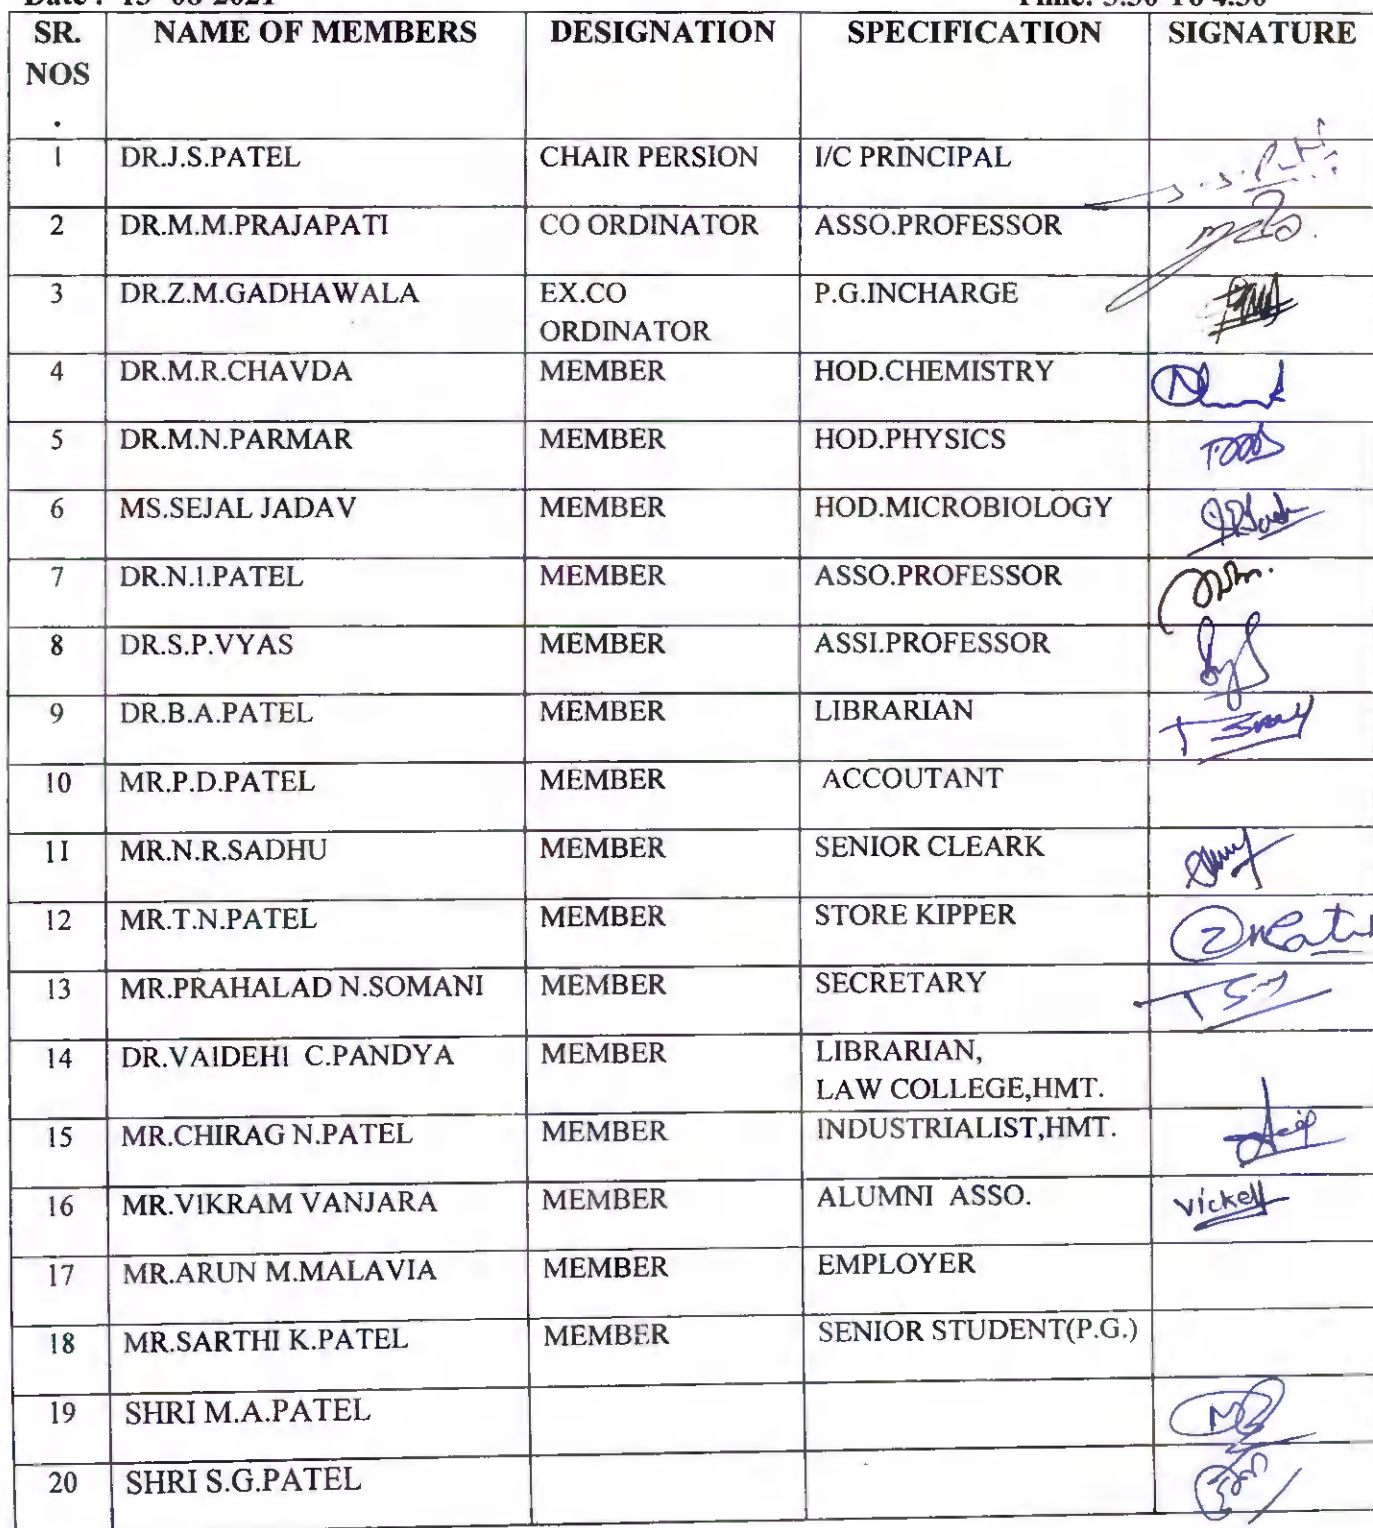 Date : 13-08-2021 Time: 3.30 To 4.30
SR. NAME OF MEMBERS DESIGNATION SPECIFICATION SIGNATURE
NOS
.
1 DR.J.S.PATEL CHAIR PERSION I/C PRINCIPAL
2 DR.M.M.PRAJAPATI CO ORDINATOR ASSO.PROFESSOR
3 DR.Z.M.GADHAWALA EX.CO P.G.INCHARGE
ORDINATOR
4 DR.M.R.CHAVDA MEMBER HOD.CHEMISTRY
5 DR.M.N.PARMAR MEMBER HOD.PHYSICS
6 MS.SEJAL JADAV MEMBER HOD.MICROBIOLOGY
7 DR.N.I.PATEL MEMBER ASSO.PROFESSOR
8 DR.S.P.VYAS MEMBER ASSI.PROFESSOR
9 DR.B.A.PATEL MEMBER LIBRARIAN
10 MR.P.D.PATEL MEMBER ACCOUTANT
11 MR.N.R.SADHU MEMBER SENIOR CLEARK
12 MR.T.N.PATEL MEMBER STORE KIPPER
13 MR.PRAHALAD N.SOMANI MEMBER SECRETARY
14 DR.VAIDEHI C.PANDYA MEMBER LIBRARIAN,
LAW COLLEGE,HMT.
15 MR.CHIRAG N.PATEL MEMBER INDUSTRIALIST,HMT.
16 MR.VIKRAM VANJARA MEMBER ALUMNI ASSO.
17 MR.ARUN M.MALAVIA MEMBER EMPLOYER
18 MR.SARTHI K.PATEL MEMBER SENIOR STUDENT(P.G.)
19 SHRI M.A.PATEL
20 SHRI S.G.PATEL